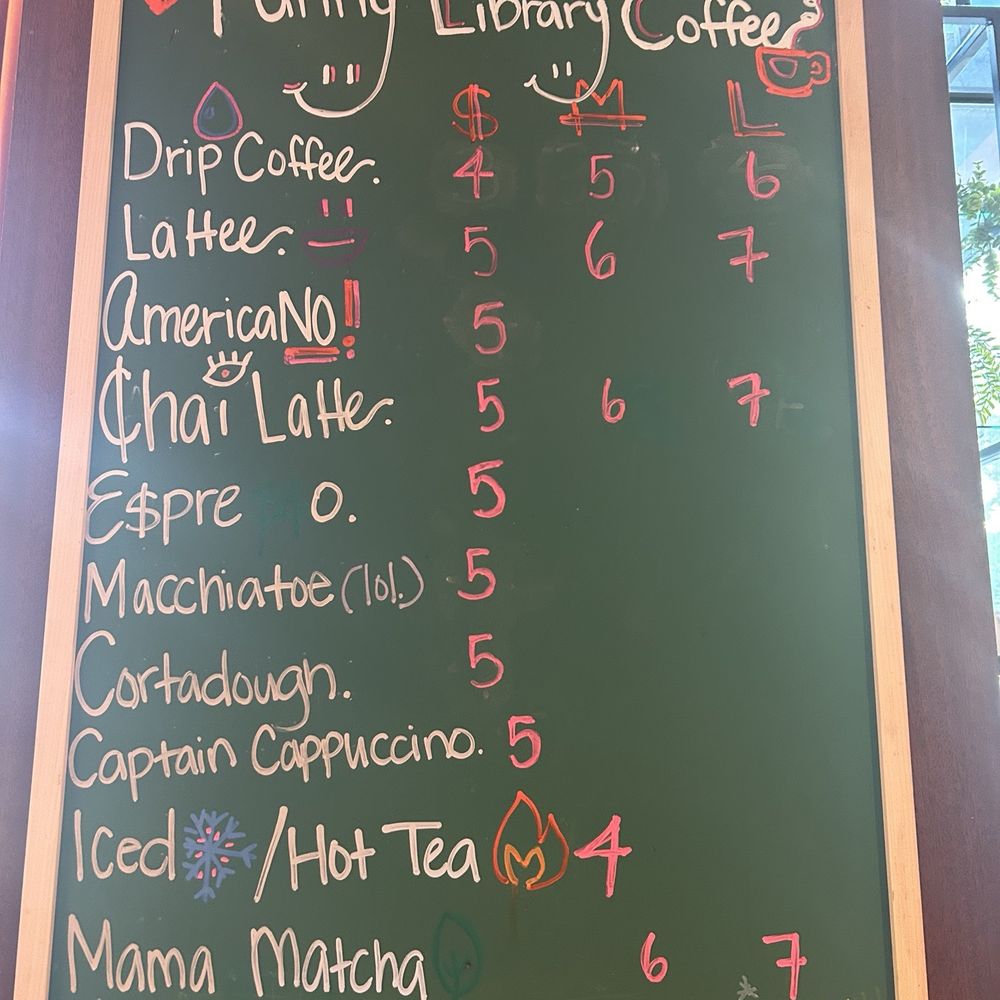 Funny Library Coffee
$ M L
Drip Coffee. 4 5 6
Lattee. 5 6 7
AmericaNO! 5
Chai Latte. 5 6 7
E$pre o. 5
Macchiatoe (lol.) 5
Cortadough. 5
Captain Cappuccino. 5
Iced / Hot Tea 4
Mama Matcha 6 7